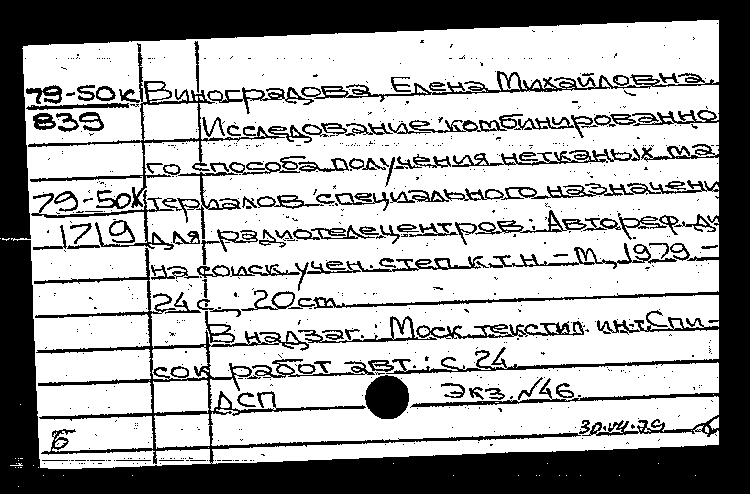 79-50к Виноградова, Елена Михайловна.
839 Исследование комбинированно
го способа получения нетканых ма-
79-50К териалов специального назначени
1719 для радиотелецентров: Автореф. ди
на соиск. учен. степ. к.т.н. – М., 1979. –
24 с.; 20 cm.
В надзаг.: Моск. текстил. ин-т. Спи-
сок работ авт.: с. 24.
ДСП Экз. №46.
б 30.VII.79